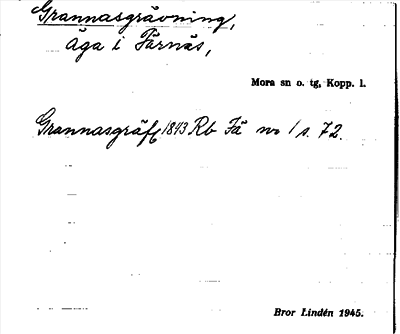 Grannasgrävning,
äga i Färnäs,
Mora sn o. tg, Kopp. l.
Grannasgräf 1843 Rb Fä no 1 s. 72.
Bror Lindén 1945.